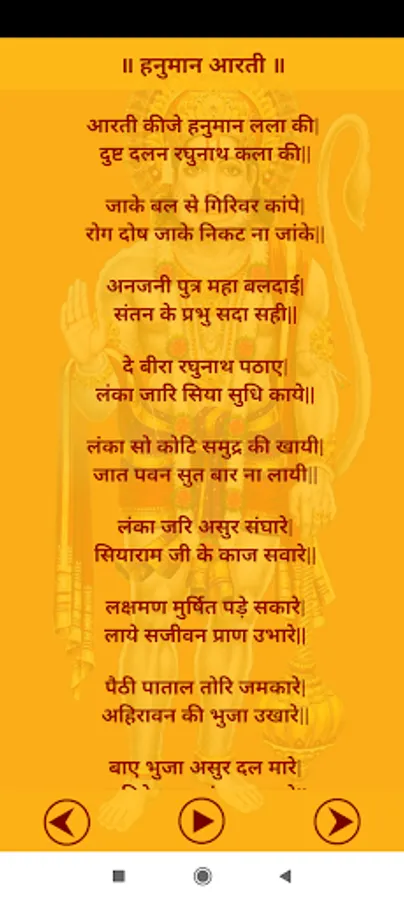 ॥ हनुमान आरती ॥
आरती कीजे हनुमान लला की|
दुष्ट दलन रघुनाथ कला की||
जाके बल से गिरिवर कांपे|
रोग दोष जाके निकट ना जांके||
अनजनी पुत्र महा बलदाई|
संतन के प्रभु सदा सही||
दे बीरा रघुनाथ पठाए|
लंका जारि सिया सुधि काये||
लंका सो कोटि समुद्र की खायी|
जात पवन सुत बार ना लायी||
लंका जरि असुर संघारे|
सियाराम जी के काज सवारे||
लक्षमण मुर्षित पड़े सकारे|
लाये सजीवन प्राण उभारे||
पैठी पाताल तोरि जमकारे|
अहिरावन की भुजा उखारे||
बाए भुजा असुर दल मारे|